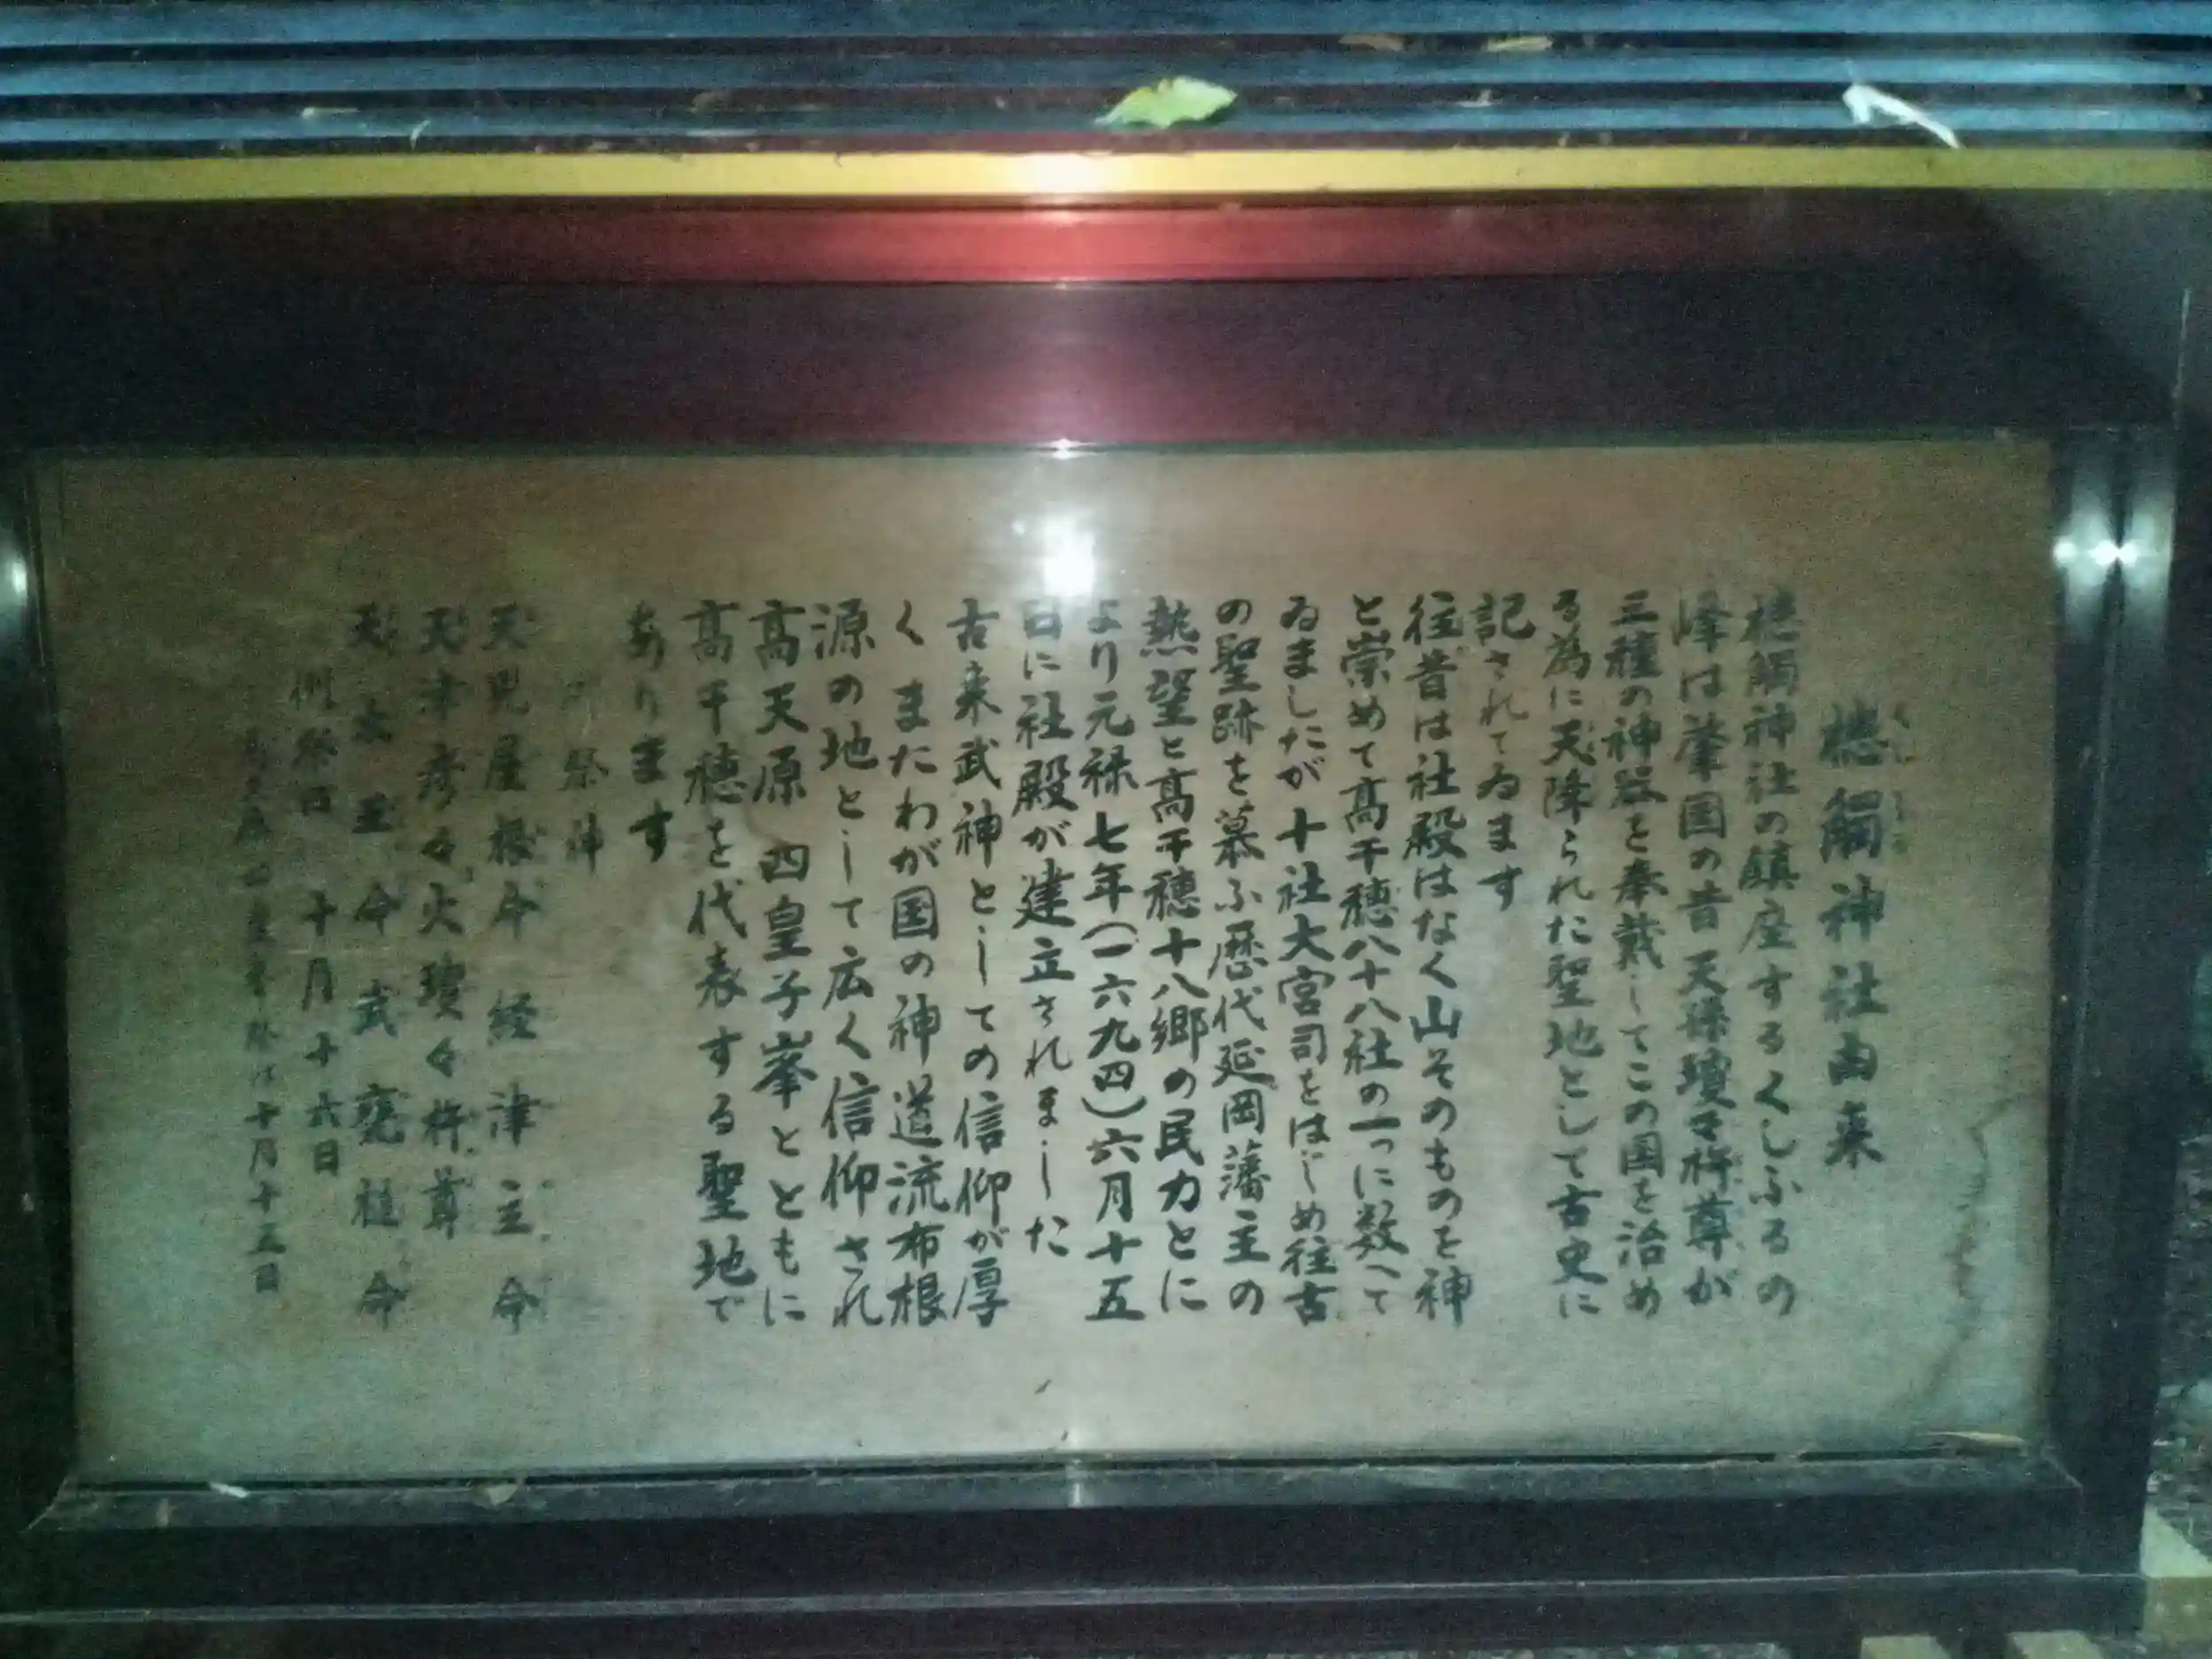 槵觸神社由来
槵觸神社の鎮座するくしふるの
峰は肇国の昔天孫瓊々杵尊が
三種の神器を奉戴してこの国を治め
る為に天降られた聖地として古史に
記されてゐます
往昔は社殿はなく山そのものを神
と崇めて高千穂八十八社の一つに数へて
ゐましたが十社大宮司をはじめ往古
の聖跡を慕ふ歴代延岡藩主の
熱望と高千穂十八郷の民力とに
より元禄七年(一六九四)六月十五
日に社殿が建立されました
古来武神としての信仰が厚
くまたわが国の神道流布根
源の地として広く信仰され
高天原 四皇子峯とともに
高千穂を代表する聖地で
あります
祭神
天児屋根命 経津主命
天津彦々火瓊々杵尊
天太玉命 武甕槌命
例祭日 十月十六日
祭は十月十五日